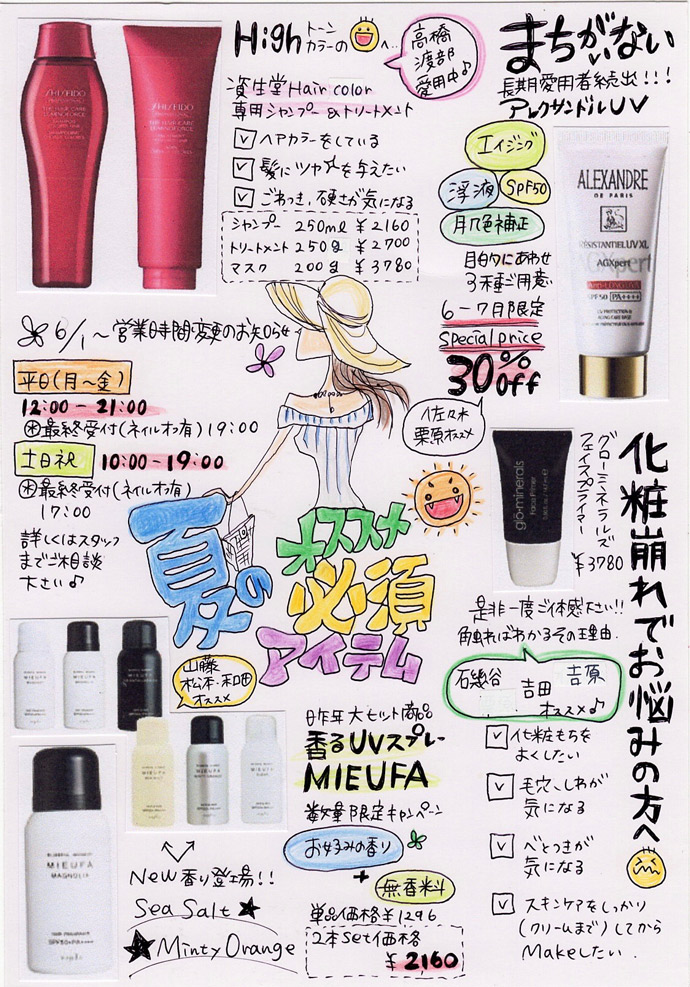 Highトーン
カラーの へ…
高橋
渡部
愛用中♪
資生堂Hair color
専用シャンプー&トリートメント
☑ ヘアカラーをしている
☑ 髪にツヤを与えたい
☑ ごわつき、硬さが気になる
シャンプー 250ml ¥2160
トリートメント 250g ¥2700
マスク 200g ¥3780
SHISEIDO
SHISEIDO
まちがいない
長期愛用者続出!!!
アレクサンドルUV
エイジング
浮液
SPF50
肌色補正
目的にあわせ
3種ご用意
6-7月限定
Special price
30%off
ALEXANDRE
DE PARIS
RÉSISTANTIEL UV XL
AGXpert
SPF50 PA++++
6/1〜営業時間変更のお知らせ
平日(月〜金)
12:00-21:00
※最終受付(ネイルオフ有)19:00
土日祝
10:00-19:00
※最終受付(ネイルオフ有)
17:00
詳しくはスタッフ
までご相談
下さい♪
夏の
オススメ
必須
アイテム
佐々木
栗原オススメ
glō·minerals
Face Primer
グローミネラルズ
フェイスプライマー
¥3780
化粧崩れでお悩みの方へ
是非一度ご体感下さい!!
触ればわかるその理由.
磯谷 吉田 吉原
オススメ♪
☑ 化粧もちを
よくしたい
☑ 毛穴、しわが
気になる
☑ べとつきが
気になる
☑ スキンケアをしっかり
(クリームまで)してから
Makeしたい.
山藤
松本・和田
オススメ
MIEUFA
MIEUFA
MIEUFA
MIEUFA
MIEUFA
MIEUFA
MIEUFA
MAGNOLIA
SPF50+PA++++
昨年大ヒット商品
香るUVスプレー
MIEUFA
数量限定キャンペーン
お好みの香り
+
無香料
単品価格¥1296
2本Set価格
¥2160
New香り登場!!
Sea Salt ★
★Minty Orange